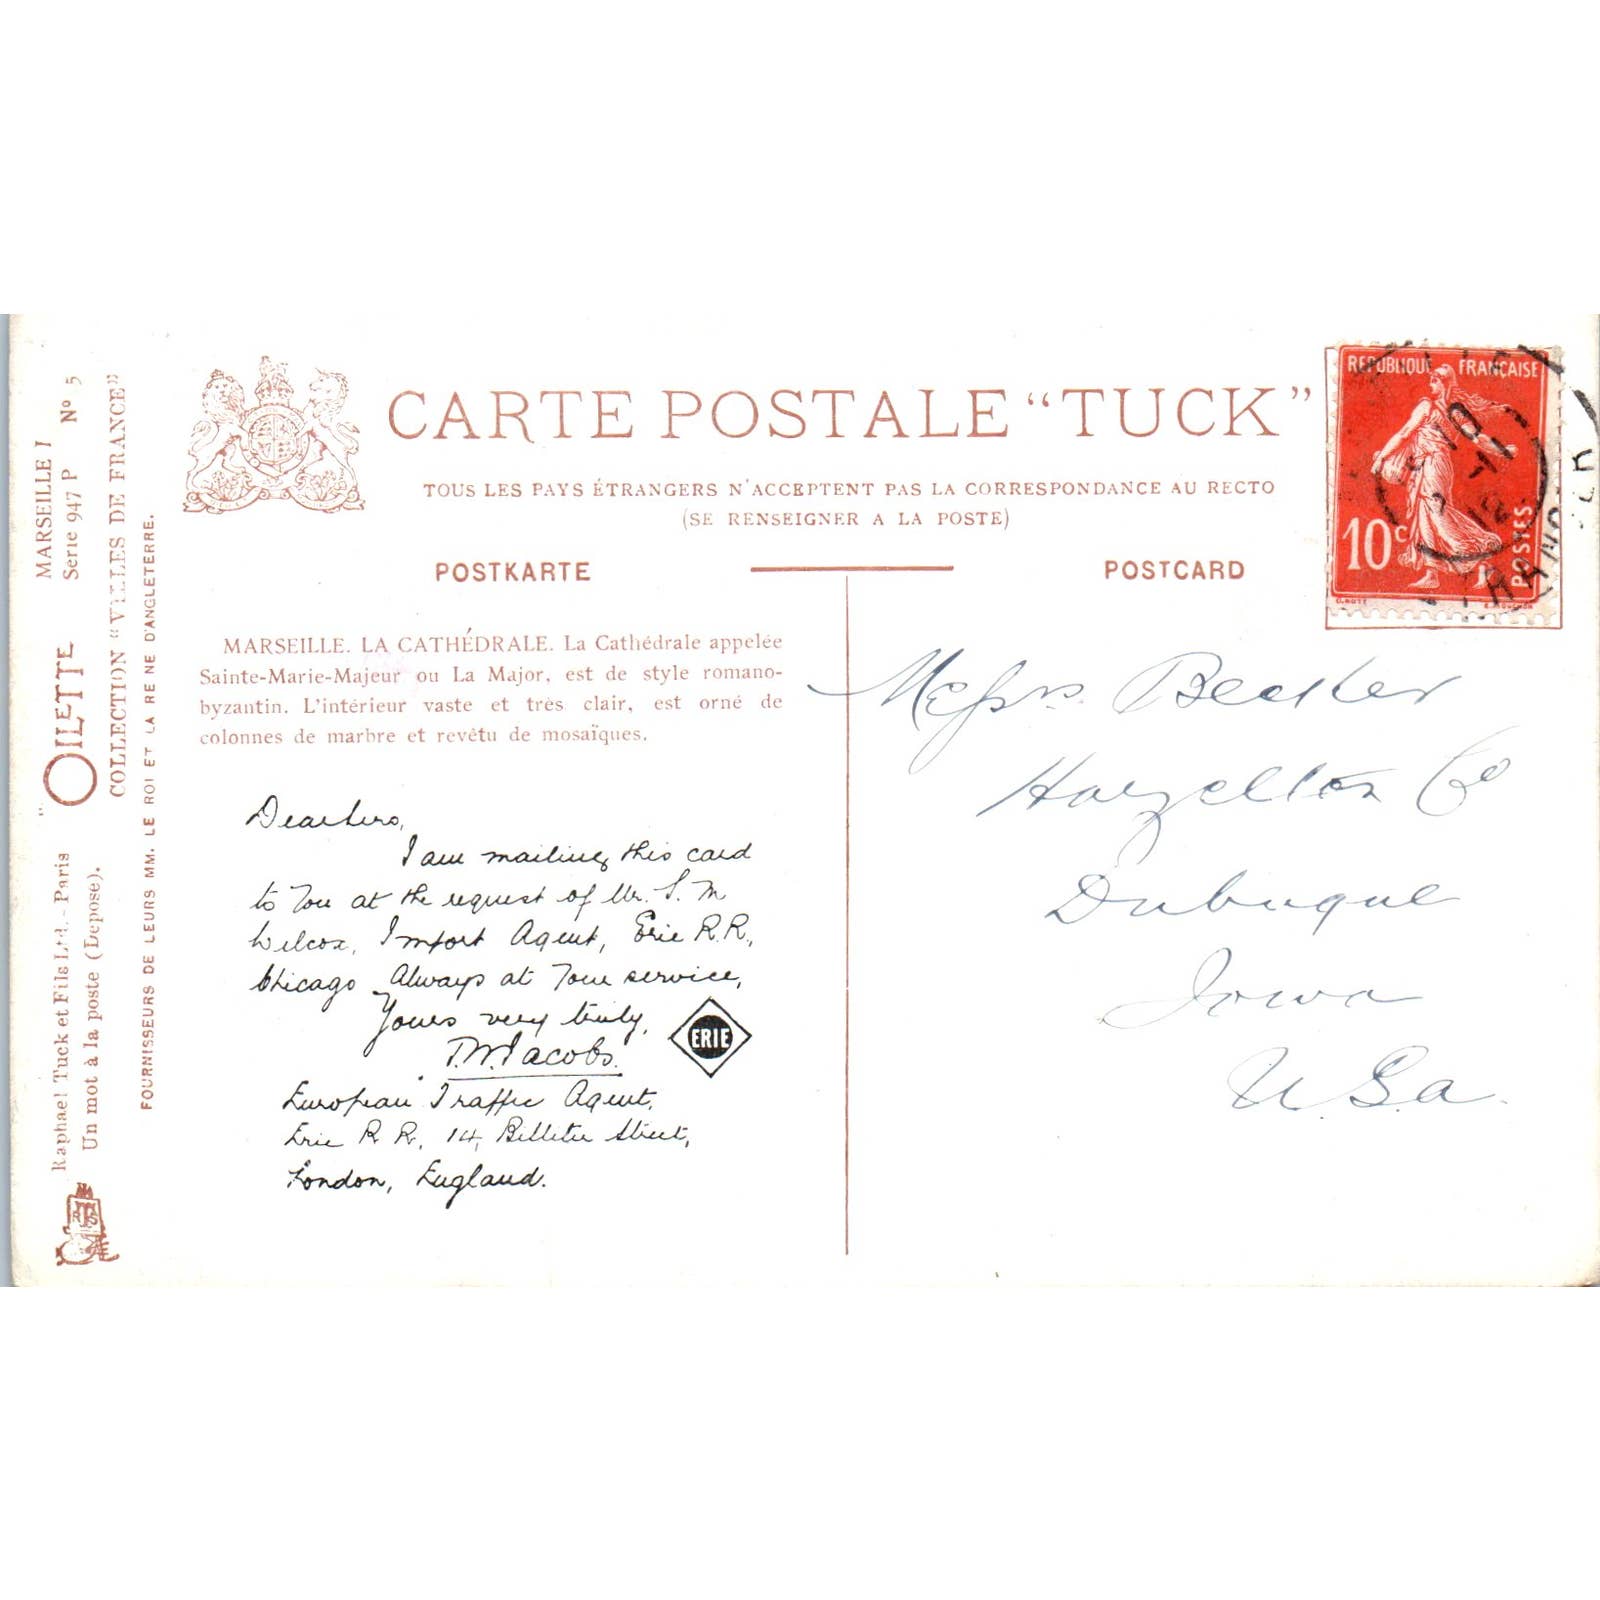 CARTE POSTALE “TUCK”
TOUS LES PAYS ÉTRANGERS N'ACCEPTENT PAS LA CORRESPONDANCE AU RECTO
(SE RENSEIGNER A LA POSTE)
POSTKARTE
POSTCARD
MARSEILLE. LA CATHÉDRALE. La Cathédrale appelée
Sainte-Marie-Majeur ou La Major, est de style romano-
byzantin. L'intérieur vaste et très clair, est orné de
colonnes de marbre et revêtu de mosaïques.
Dear Sirs,
I am mailing this card
to You at the request of Mr. S. M
Wilcox, Import Agent, Erie R.R.,
Chicago Always at Your service,
Yours very truly,
T.W. Jacobs.
ERIE
European Traffic Agent,
Erie R R, 14, Billiter Street,
London, England.
Messrs. Becker
Hazelton Co
Dubuque
Iowa
U.S.a.
REPUBLIQUE FRANÇAISE
10c
POSTES
O. ROTY
E. MOUCHON
MARSEILLE I
Serie 947 P No 5
“OILETTE
COLLECTION “VILLES DE FRANCE”
FOURNISSEURS DE LEURS MM. LE ROI ET LA REINE D'ANGLETERRE.
Raphael Tuck et Fils Ltd. - Paris
Un mot à la poste (Depose).